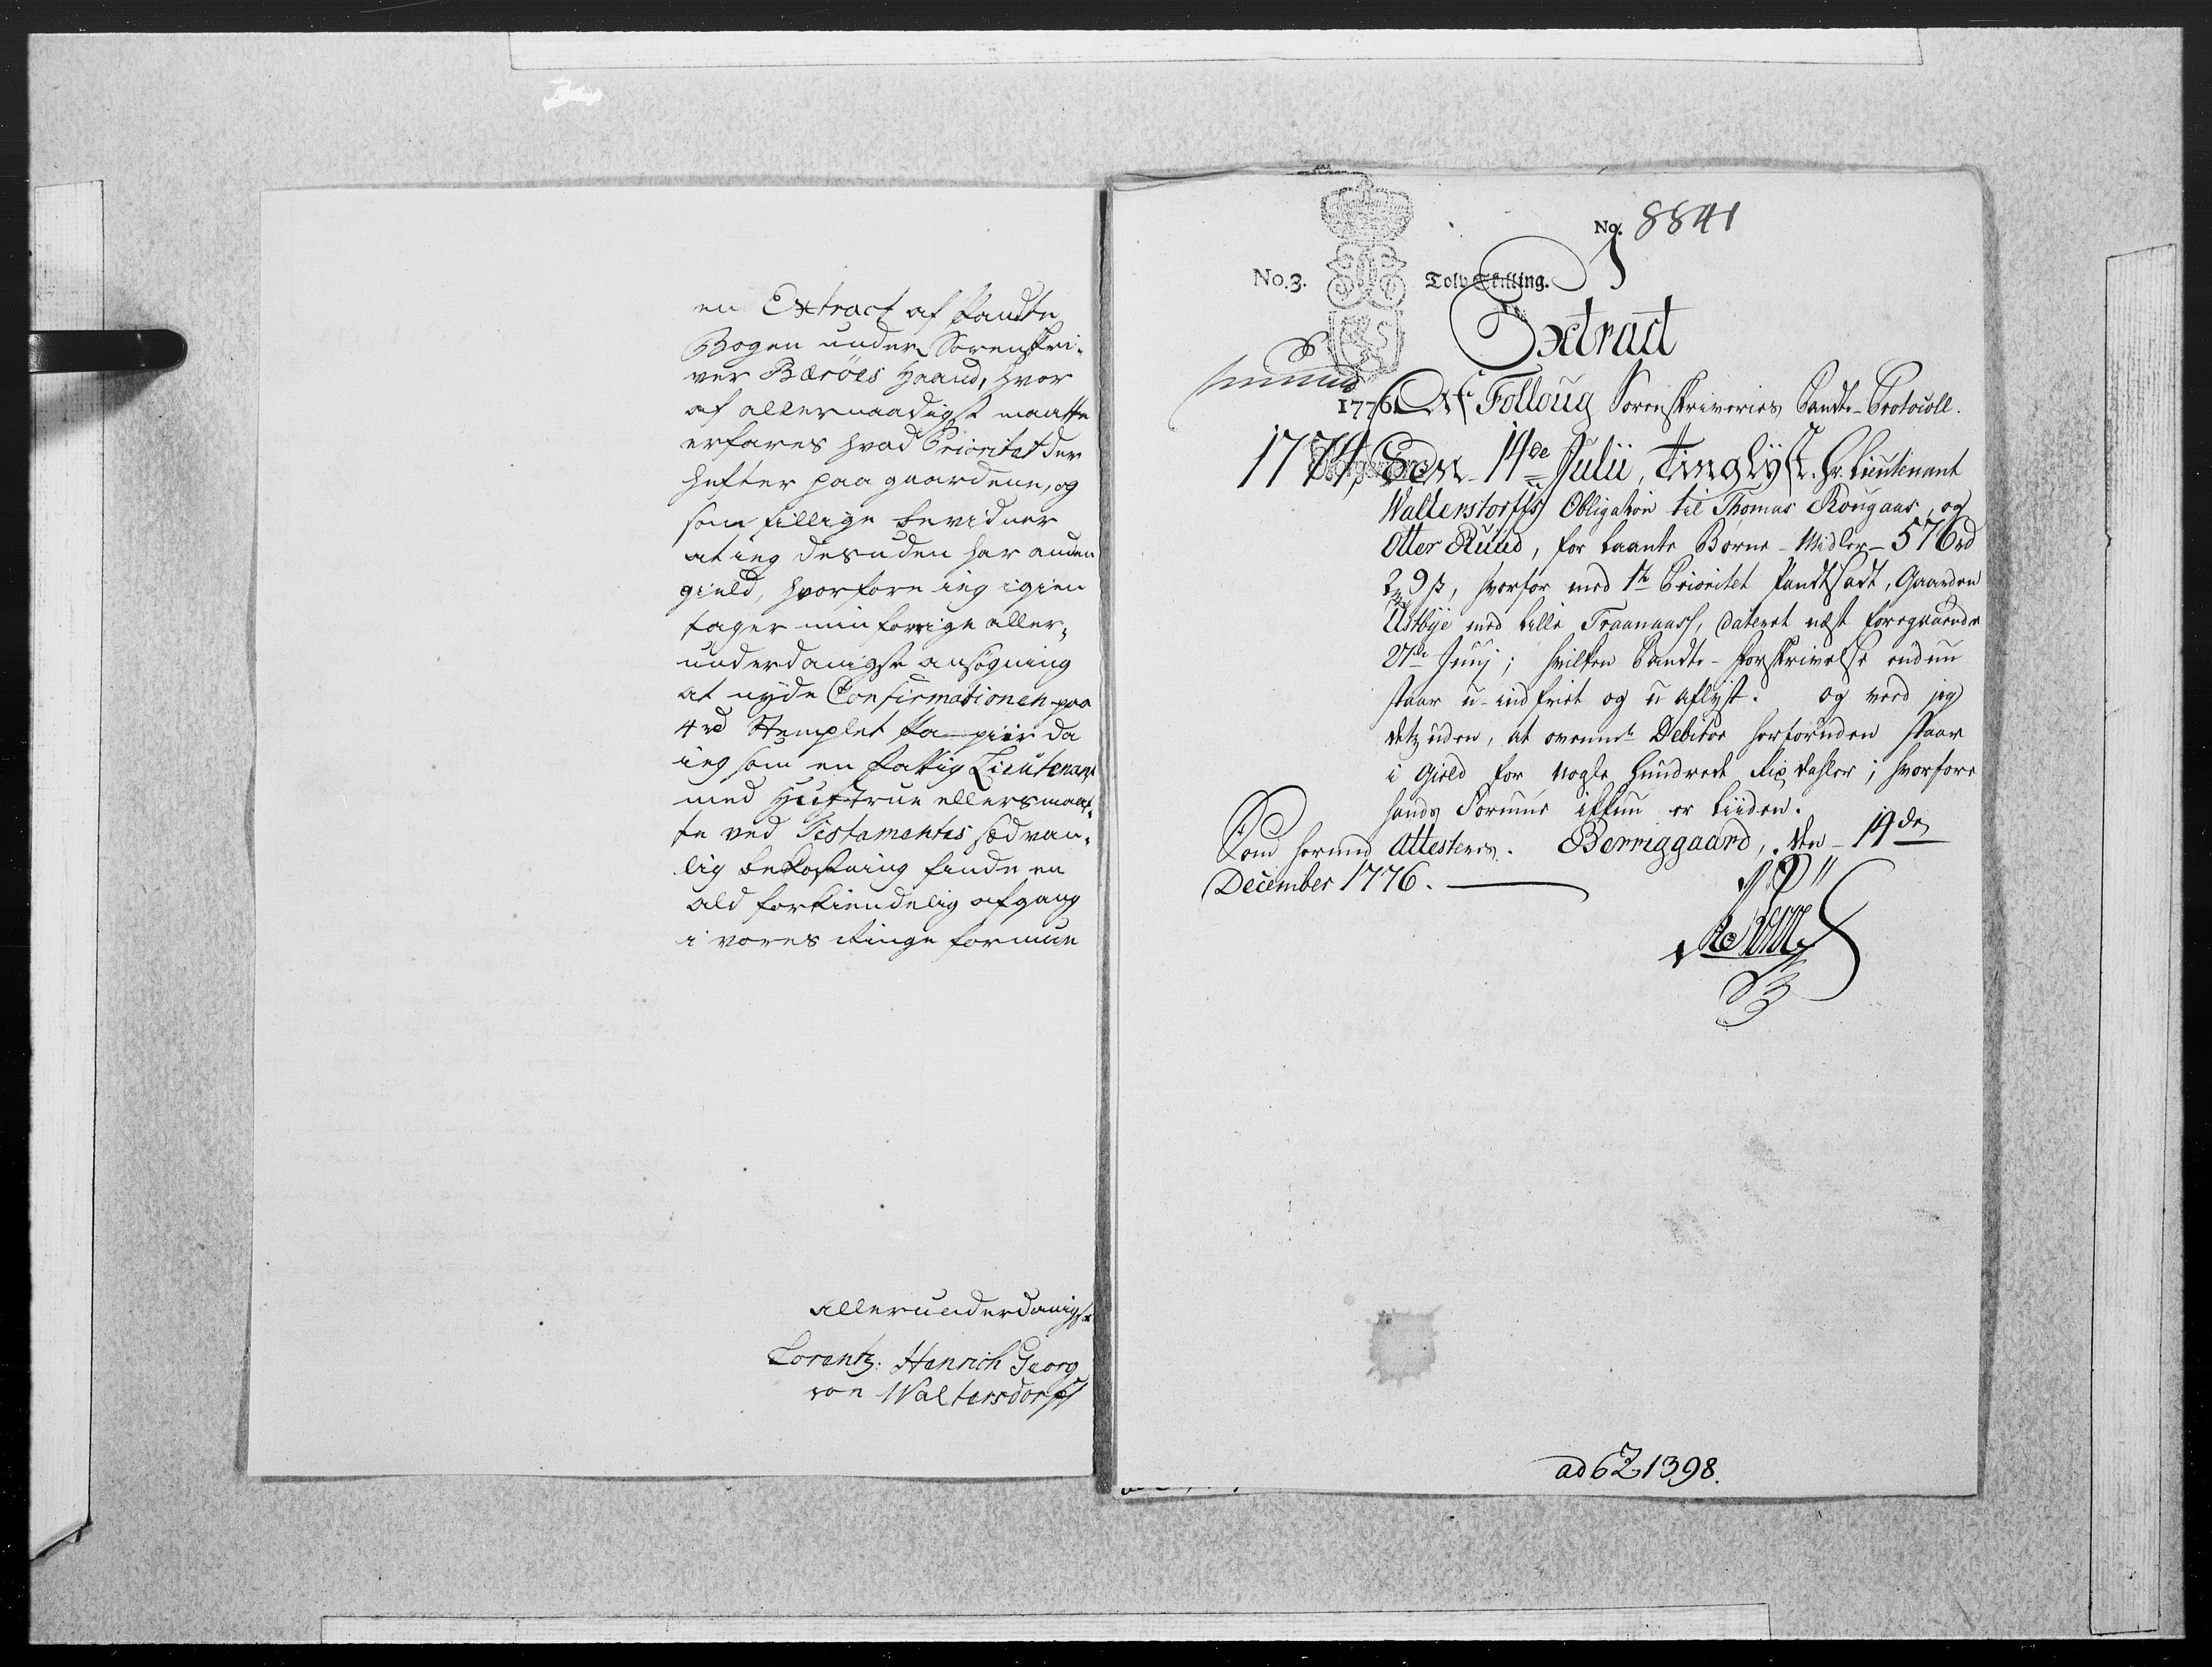 en Extract af Pandte
Bogen under Sorenskri-
ver Bærøes Haand, hvor
af allernaadigst maatte
erfares hvad Prioritet der
hefter paa gaardene, og
som tillige bevidner
at ieg desuden har anden
gield, hvorfore ieg igien
tager min forrige aller-
underdanigste ansøgning
at nyde Confirmationen paa
4 rd Stemplet Papiir da
ieg som en fattig Lieutenant
med Hustrue ellers maat-
te ved Testamentes sædvan-
lig bekostning finde en
ald forkiendelig afgang
i vores ringe formue
allerunderdanigst
Lorentz Henrich Georg
von Waltersdorff
No. 8841
No. 3. Tolv Skilling.
1
Extract
1776. Af Folloug Sorenskriveries Pandte-Protocoll.
1774, Den 14de Julii, tinglyst Hr. Lieutenant
Walterstorffs Obligation til Thomas Kougaas, og
Otter Ruud, for laante Børne-Midler 576 rd
2 9 s, hvorfor med 1te Prioritet Pandtsadt, Gaarden
Ustbye med lille Traanaass, dateret næst foregaaende
27de Junj; hvilken Pandte-Forskrivelse endnu
staar u-indfriet og u aflyst. og veed jeg
detz uden, at ovennte Debitor herforuden staar
i Gield for nogle hundrede Rixdahler; hvorfore
hands Formue ikkun er liiden.
Som herved Attesteres. Berriggaard, den 14de
December 1776.
ad 6Z1398.